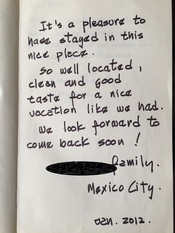 It's a pleasure to
have stayed in this
nice place.
So well located,
clean and good
taste for a nice
vocation like we had.
We look forward to
come back soon!
Family.
Mexico City.
Jan. 2012.